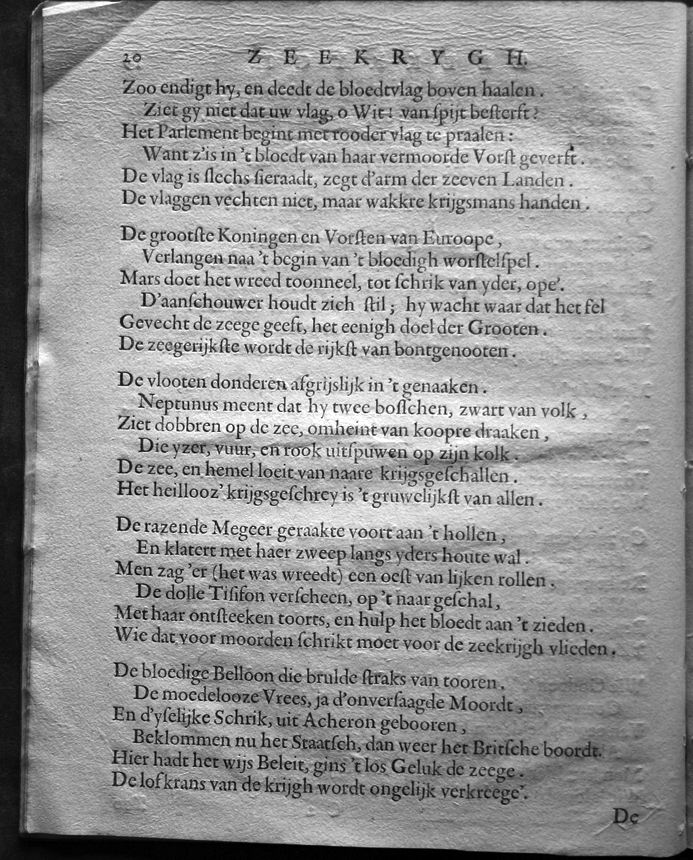 20 ZEEKRYGH.
Zoo endigt hy, en deedt de bloedtvlag boven haalen.
Ziet gy niet dat uw vlag, o Wit! van ſpijt beſterft?
Het Parlement begint met rooder vlag te praalen:
Want z'is in 't bloedt van haar vermoorde Vorſt geverft.
De vlag is ſlechs ſieraadt, zegt d'arm der zeeven Landen.
De vlaggen vechten niet, maar wakkre krijgsmans handen.
De grootſte Koningen en Vorſten van Euroope,
Verlangen naa 't begin van 't bloedigh worſtelſpel.
Mars doet het wreed toonneel, tot ſchrik van yder, ope'.
D'aanſchouwer houdt zich ſtil; hy wacht waar dat het fel
Gevecht de zeege geeft, het eenigh doel der Grooten.
De zeegerijkſte wordt de rijkſt van bontgenooten.
De vlooten donderen afgrijslijk in 't genaaken.
Neptunus meent dat hy twee boſſchen, zwart van volk,
Ziet dobbren op de zee, omheint van koopre draaken,
Die yzer, vuur, en rook uitſpuwen op zijn kolk.
De zee, en hemel loeit van naare krijgsgeſchallen.
Het heillooz' krijgsgeſchrey is 't gruwelijkſt van allen.
De razende Megeer geraakte voort aan 't hollen,
En klatert met haer zweep langs yders houte wal.
Men zag 'er (het was wreedt) een oeſt van lijken rollen.
De dolle Tiſifon verſcheen, op 't naar geſchal,
Met haar ontſteeken toorts, en hulp het bloedt aan 't zieden.
Wie dat voor moorden ſchrikt moet voor de zeekrijgh vlieden.
De bloedige Belloon die brulde ſtraks van tooren,
De moedelooze Vrees, ja d'onverſaagde Moordt,
En d'yſelijke Schrik, uit Acheron gebooren,
Beklommen nu het Staatſch, dan weer het Britſche boordt.
Hier hadt het wijs Beleit, gins 't los Geluk de zeege.
De lofkrans van de krijgh wordt ongelijk verkreege'.
De